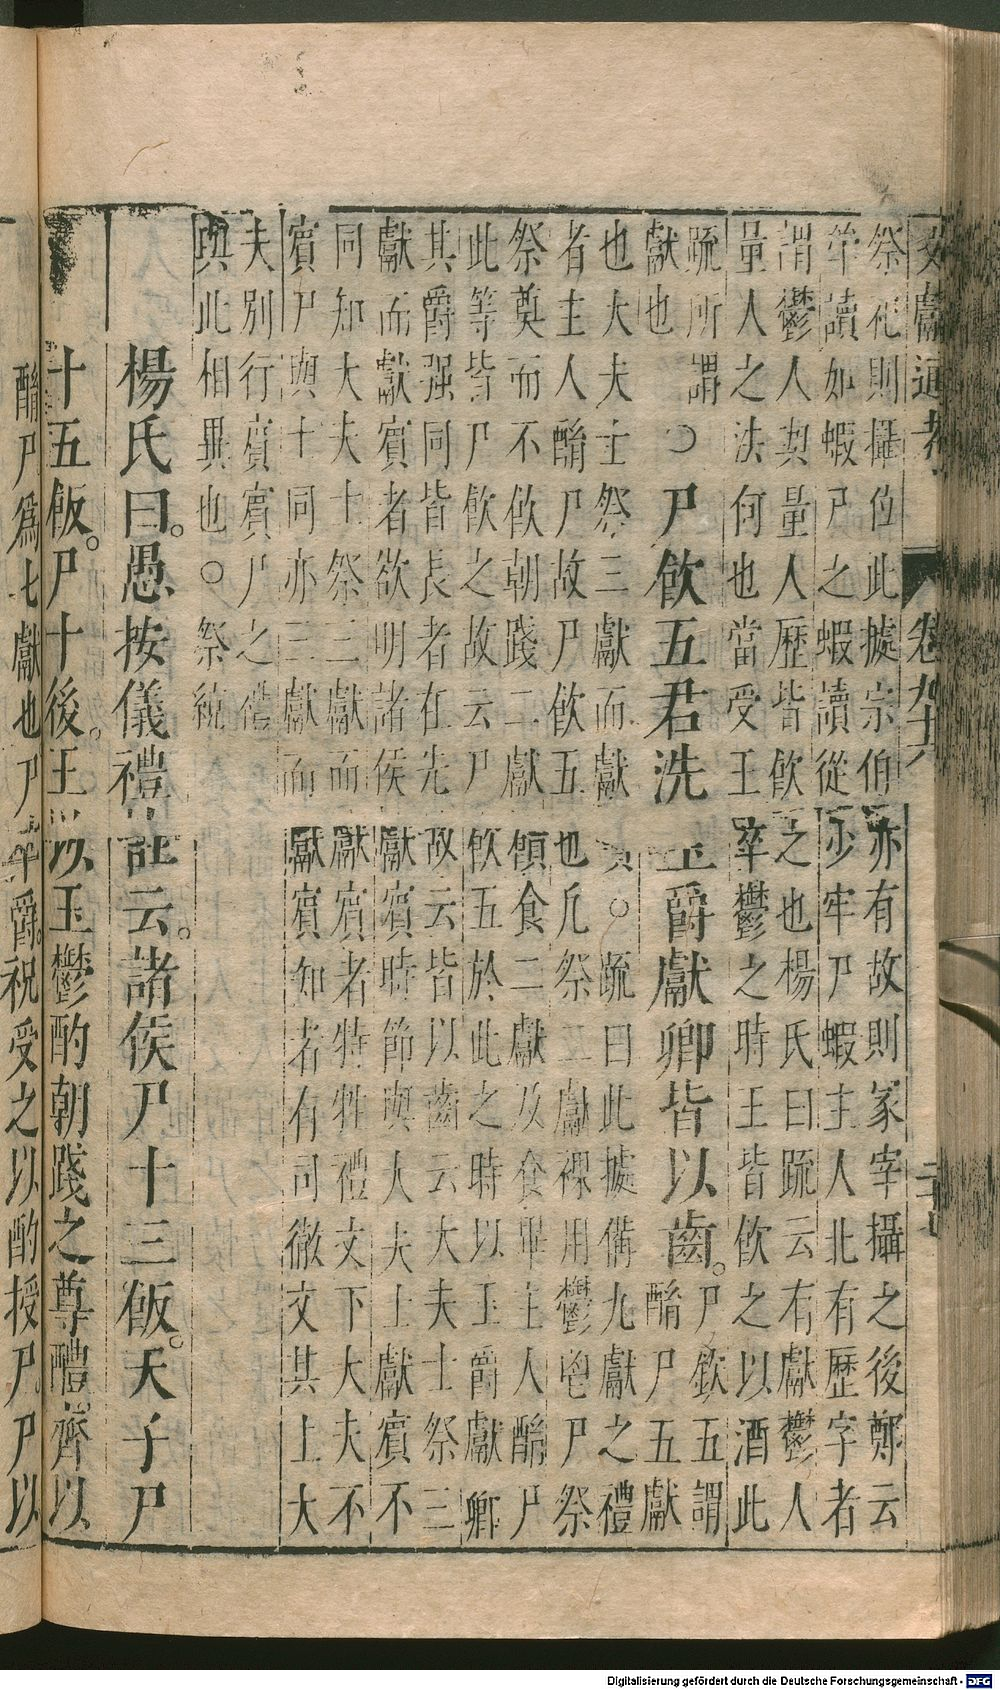 文獻通考 卷九十六
祭祀則攝位此據宗伯亦有故則冢宰攝之後鄭云
斝讀如蝦尸之蝦讀從少牢尸蝦主人北有歷字者
謂鬱人契量人歷皆飲之也楊氏曰疏云右獻鬱人
量人之法何也當受王卒鬱之時王皆飲之以酒此
疏所謂
獻也
○尸飲五君洗玉爵獻卿皆以齒。
尸飲五謂
酳尸五獻
也大夫士祭三獻而獻賓○疏曰此據備九獻之禮
者主人酳尸故尸飲五也凡祭二獻祼用鬱鬯尸祭
祭奠而不飲朝踐二獻饋食二獻及食畢主人酳尸
此等皆尸飲之故云尸飲五於此之時以玉爵獻卿
其爵强同皆長者在先故云皆以齒云大夫士祭三
獻而獻賓者欲明諸侯獻賓時節與大夫士獻賓不
同知大夫士祭三獻而獻賓者特牲禮文下大夫不
賓尸與士同亦三獻而獻賓知者有司徹文其上大
夫別行賓賓尸之禮
與此相異也○祭統
楊氏曰。愚按儀禮註云。諸侯尸十三飯。天子尸
十五飯。尸十後。王以玉鬱酌朝踐之尊醴齊以
酳尸爲七獻也尸卒爵。祝受之以酌授尸。尸以
Digitalisierung gefördert durch die Deutsche Forschungsgemeinschaft - DFG